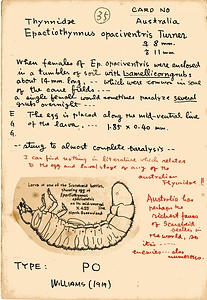 35
CARD NO
Thynnidae Australia
Epactiothynnus opaciventris Turner
♀ 8 mm.
♂ 11 mm
When females of Ep. opaciventris were enclosed
in a tumbler of soil with Lamellicorn grubs
about 14 mm long, -- which were common in soil
of the cane fields ---
a single female would sometimes paralyze several
grubs overnight --
E The egg is placed along the mid-ventral line
G of the larva, --- 1.85 x 0.40 mm.
G.
-- stung to almost complete paralysis --
I can find nothing in literature which relates
to the egg and larval stage of any of the
australian
Thynnidae !!
Larva of one of the Scarabaeid beetles,
showing egg of
Epactiothynnus
opaciventris
on the mid-ventral
X 4.25
North Queensland
Australia has
perhaps the
richest fauna
of Scarabaeid
beetles in
the world, so
its
enemies also
numerous.
TYPE: PO
Williams (1919)